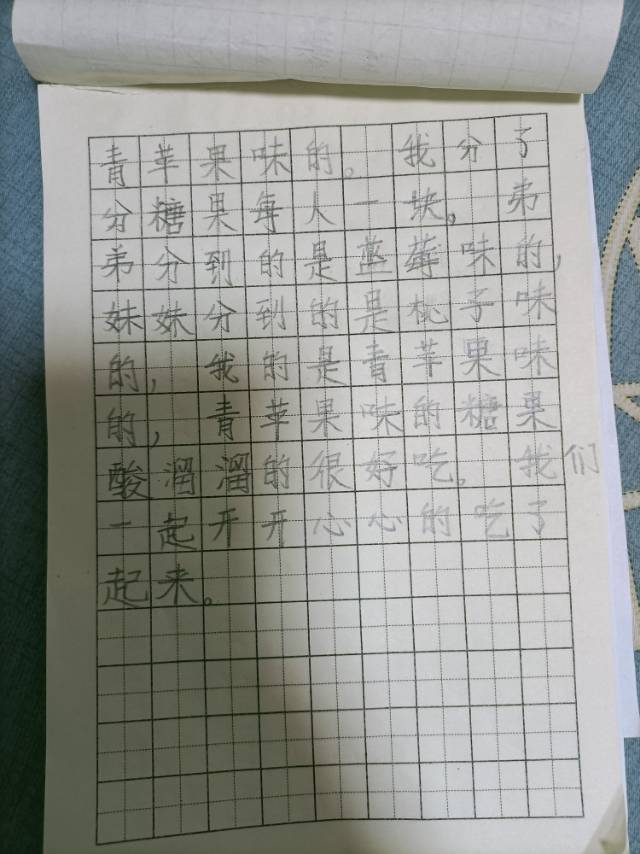 青苹果味的。我分了
分糖果每人一块。弟
弟分到的是蓝莓味的,
妹妹分到的是桃子味
的,我的是青苹果味
的,青苹果味的糖果
酸溜溜的很好吃。我们
一起开开心心的吃了
起来。